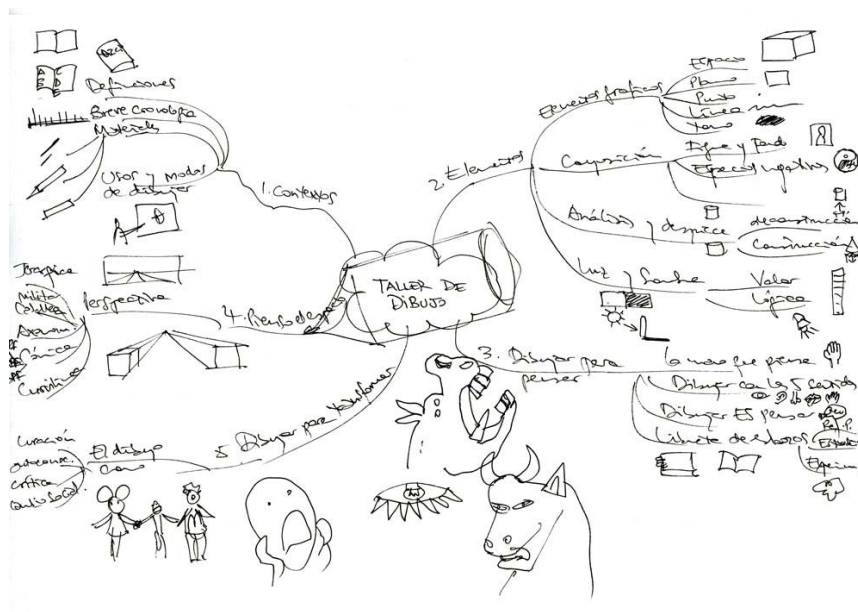 TALLER DE
DIBUJO
1. Contextos
Definiciones
Breve cronología
Materiales
Usos y modos
de dibujar
2. Elementos
Elementos gráficos
Espacio
Plano
Punto
Línea
Tono
Composición
Figura y fondo
Espacios negativos
Análisis y despiece
deconstrucción
Construcción
Luz y Sombra
Valor
Lógica
3. Dibujar para
pensar
la mano que piensa
Dibujar con los 5 sentidos
Dibujar ES pensar
Libreta de esbozos
4.
Perspectiva
Militar
Caballera
Cónica
Curvilínea
5. Dibujar para transformar
El dibujo
como
curación
crítica